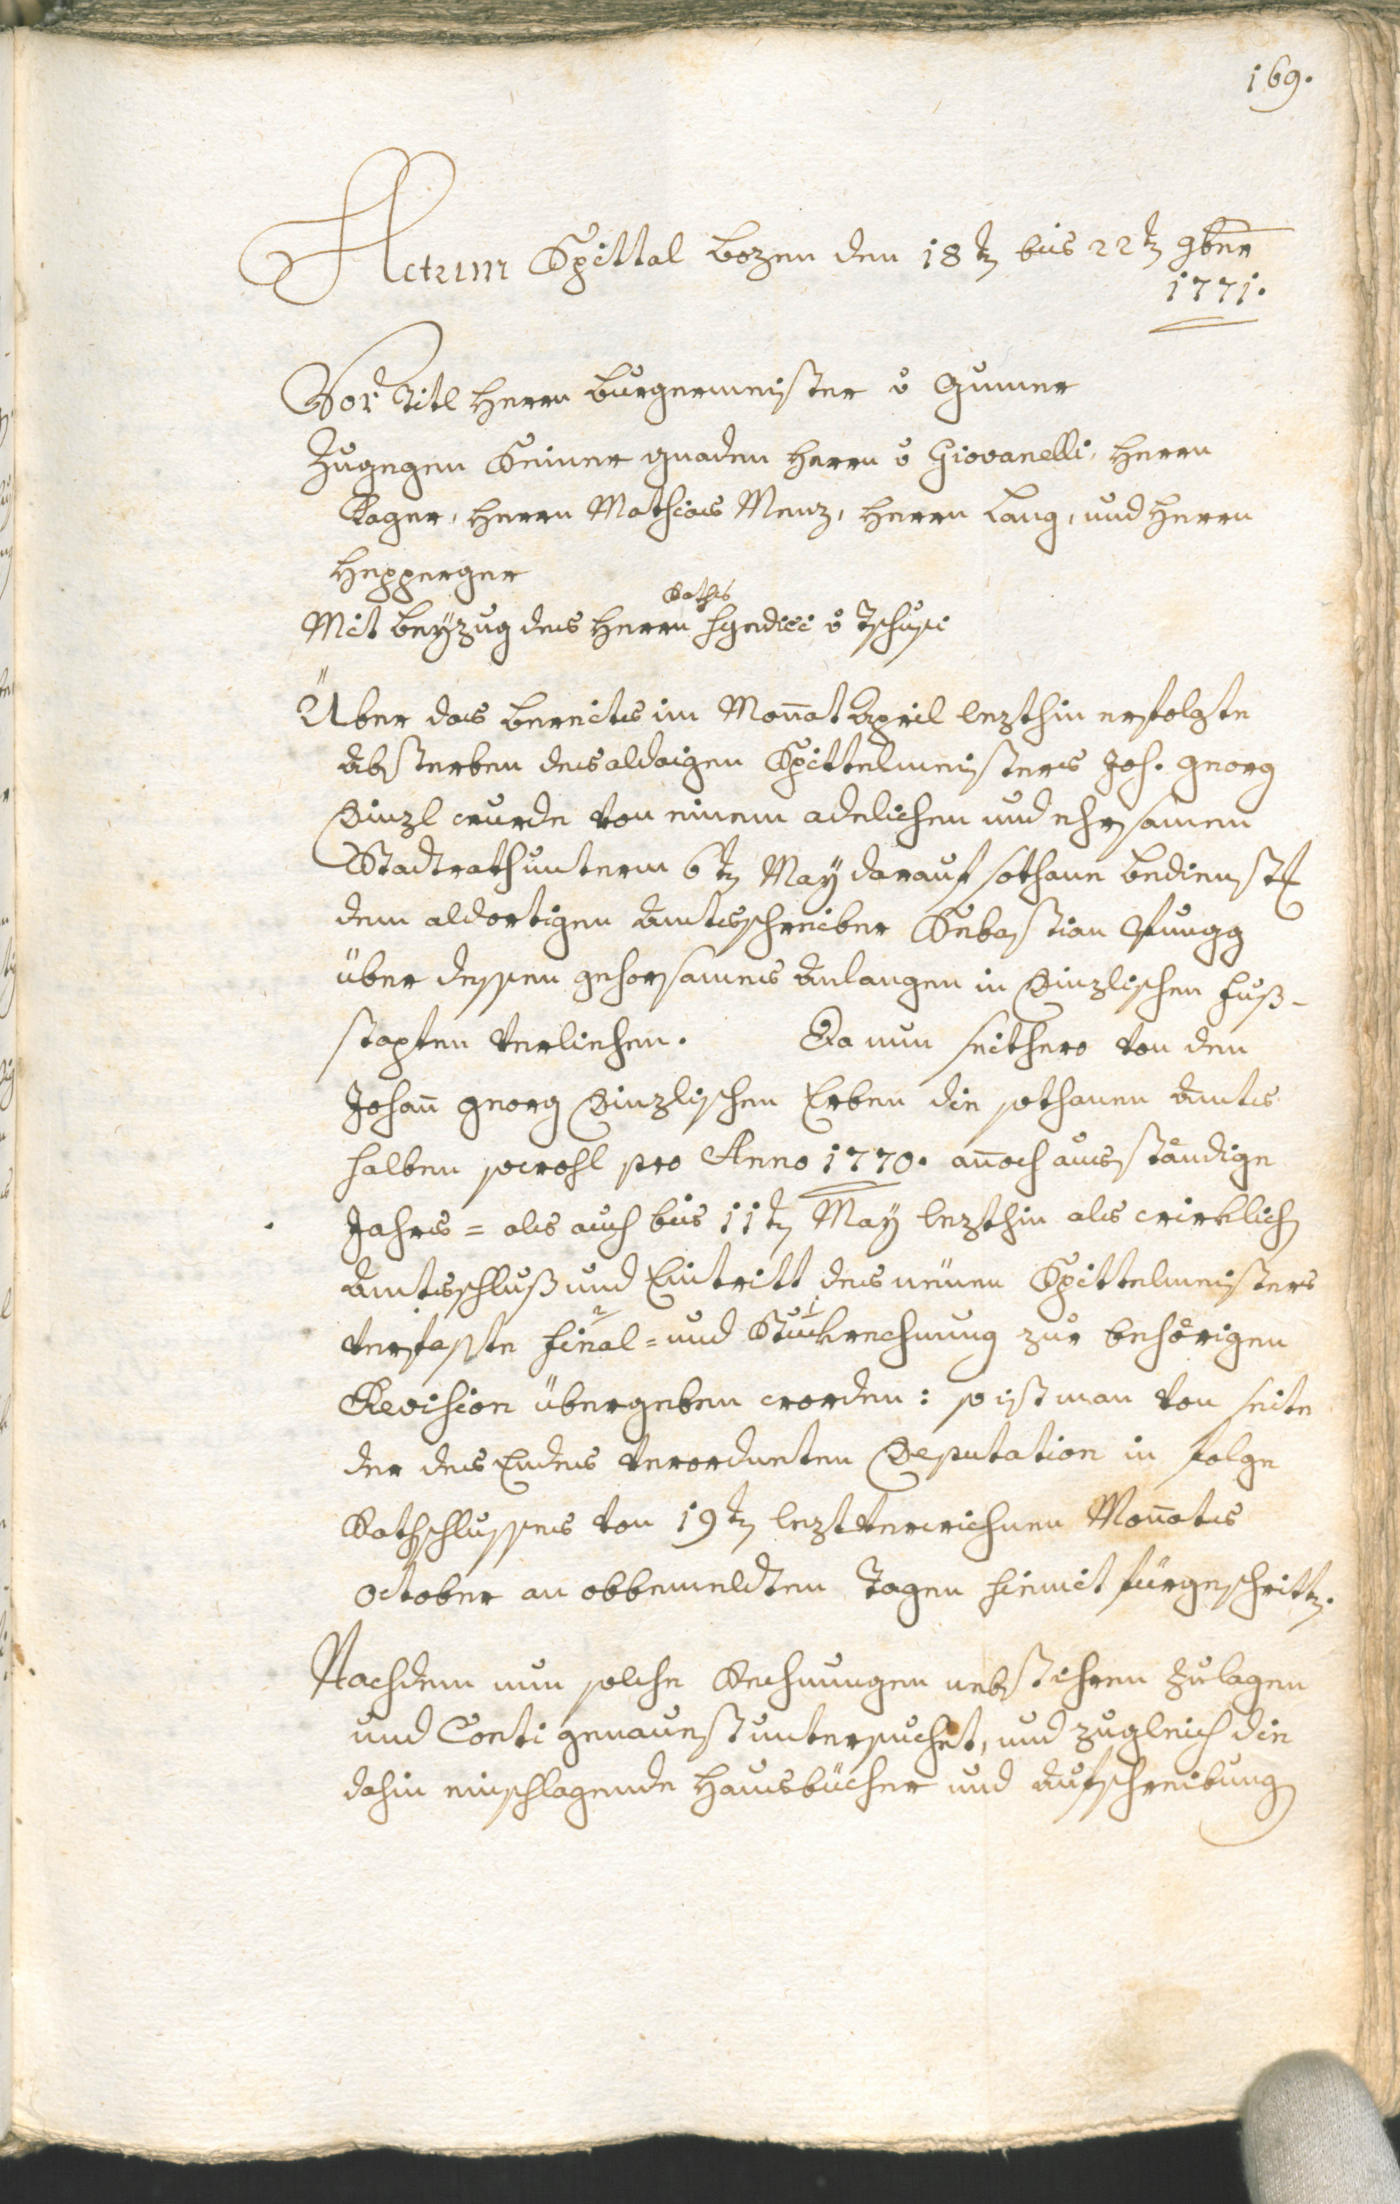 169.
Actum Spittal Bozen den 18tn bis 22tn 9ber
1771.
Vor Titl Herrn Burgermeister v Gumer
Zugegen Seiner gnaden Herrn v Giovanelli, Herrn
Rager, Herrn Mathias Menz, Herrn Lang, und Herrn
Hepperger
Raths
Mit Beyzug des Herrn Syndici v Tschusi
Über das bereits im Monnat April lezthin erfolgte
Absterben des aldaigen Spittelmeisters Joh. Georg
Dinzl wurde von einem adelichen und ehrsamen
Stadtrath unterm 6tn May darauf sothane Bedienst
dem aldortigen Amtsschreiber Sebastian Pungg
über dessen gehorsames Anlangen in Dinzlischen Fuß-
stapfen verliehen. Da nun seithero von den
Johann Georg Dinzlischen Erben die sothanen Amts
halben sowohl pro Anno 1770. annoch ausständige
Jahrs= als auch bis 11tn May lezthin als wirklich
Amtsschluß und Eintritt des neuen Spittelmeisters
verfaßte Final= und Stuckrechnung zur behörigen
Revision übergeben worden: so ist man von seite
der des Endes verordneten Deputation in folge
Rathschlusses von 19tn leztverwichnen Monnats
October an obbemeldten Tagen hiemit fürgeschrittn.
Nachdem nun solche Rechnungen nebst ihren Zulagen
und Conti genauest untersuchet, und zugleich die
dahin einschlagende Hausbücher und Aufschreibung